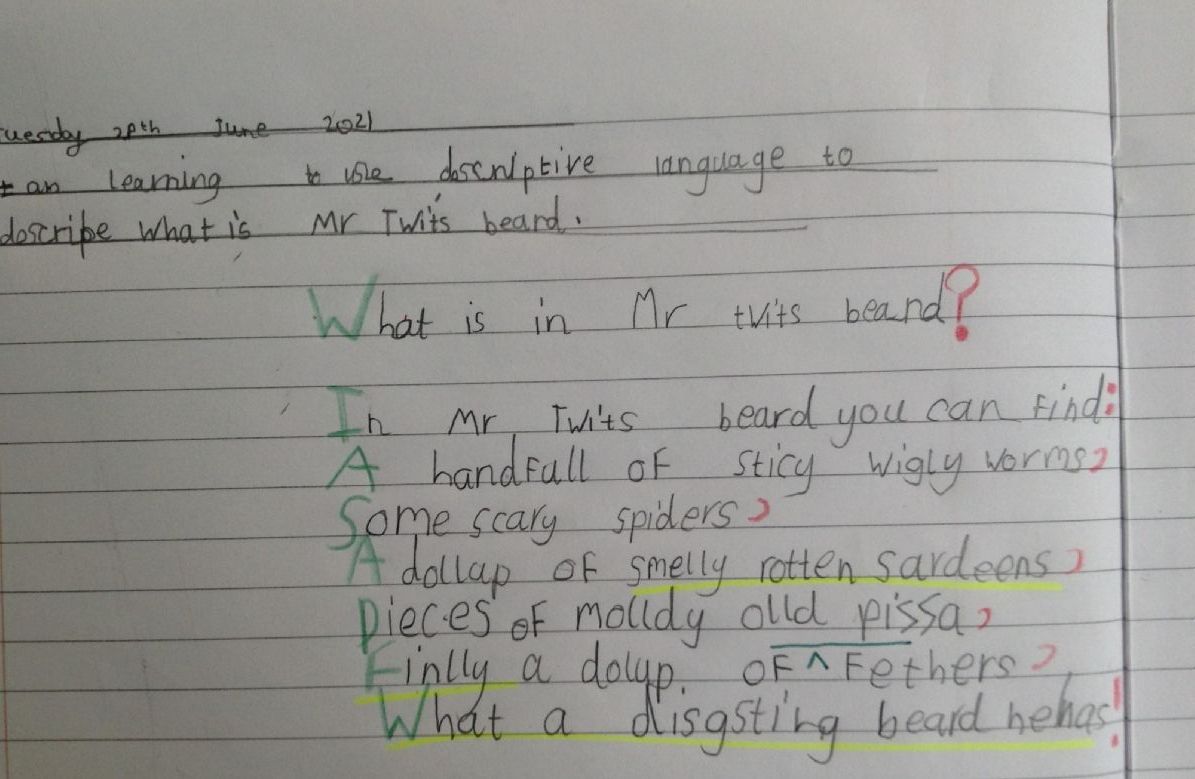 uesday 28th June 2021
I am learning to use descriptive language to
describe what is Mr Twit's beard.
What is in Mr tvits beand?
In Mr Twits beard you can Find:
A handFull oF sticy wigly worms,
Some scary spiders,
A dollap oF smelly rotten sardeens,
Pieces oF molldy olld pissa,
Finlly a dolyp. oF ^ Fethers,
What a disgsting beard hehas!